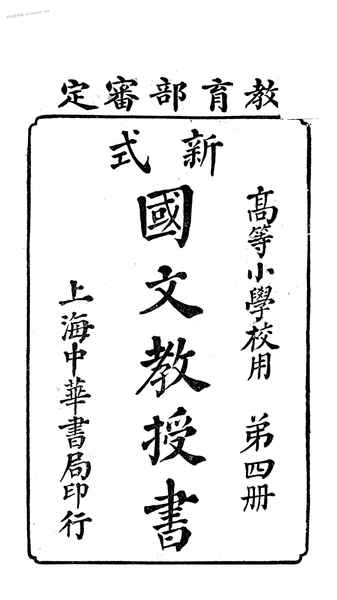 教育部審定
高等小學校用 第四册
新式
國文教授書
上海中華書局印行